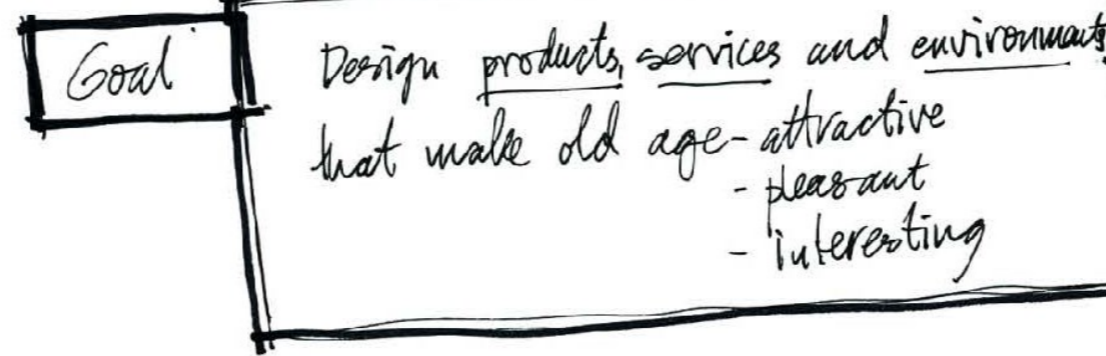 Goal
Design products, services and environments
that make old age - attractive
- pleasant
- interesting